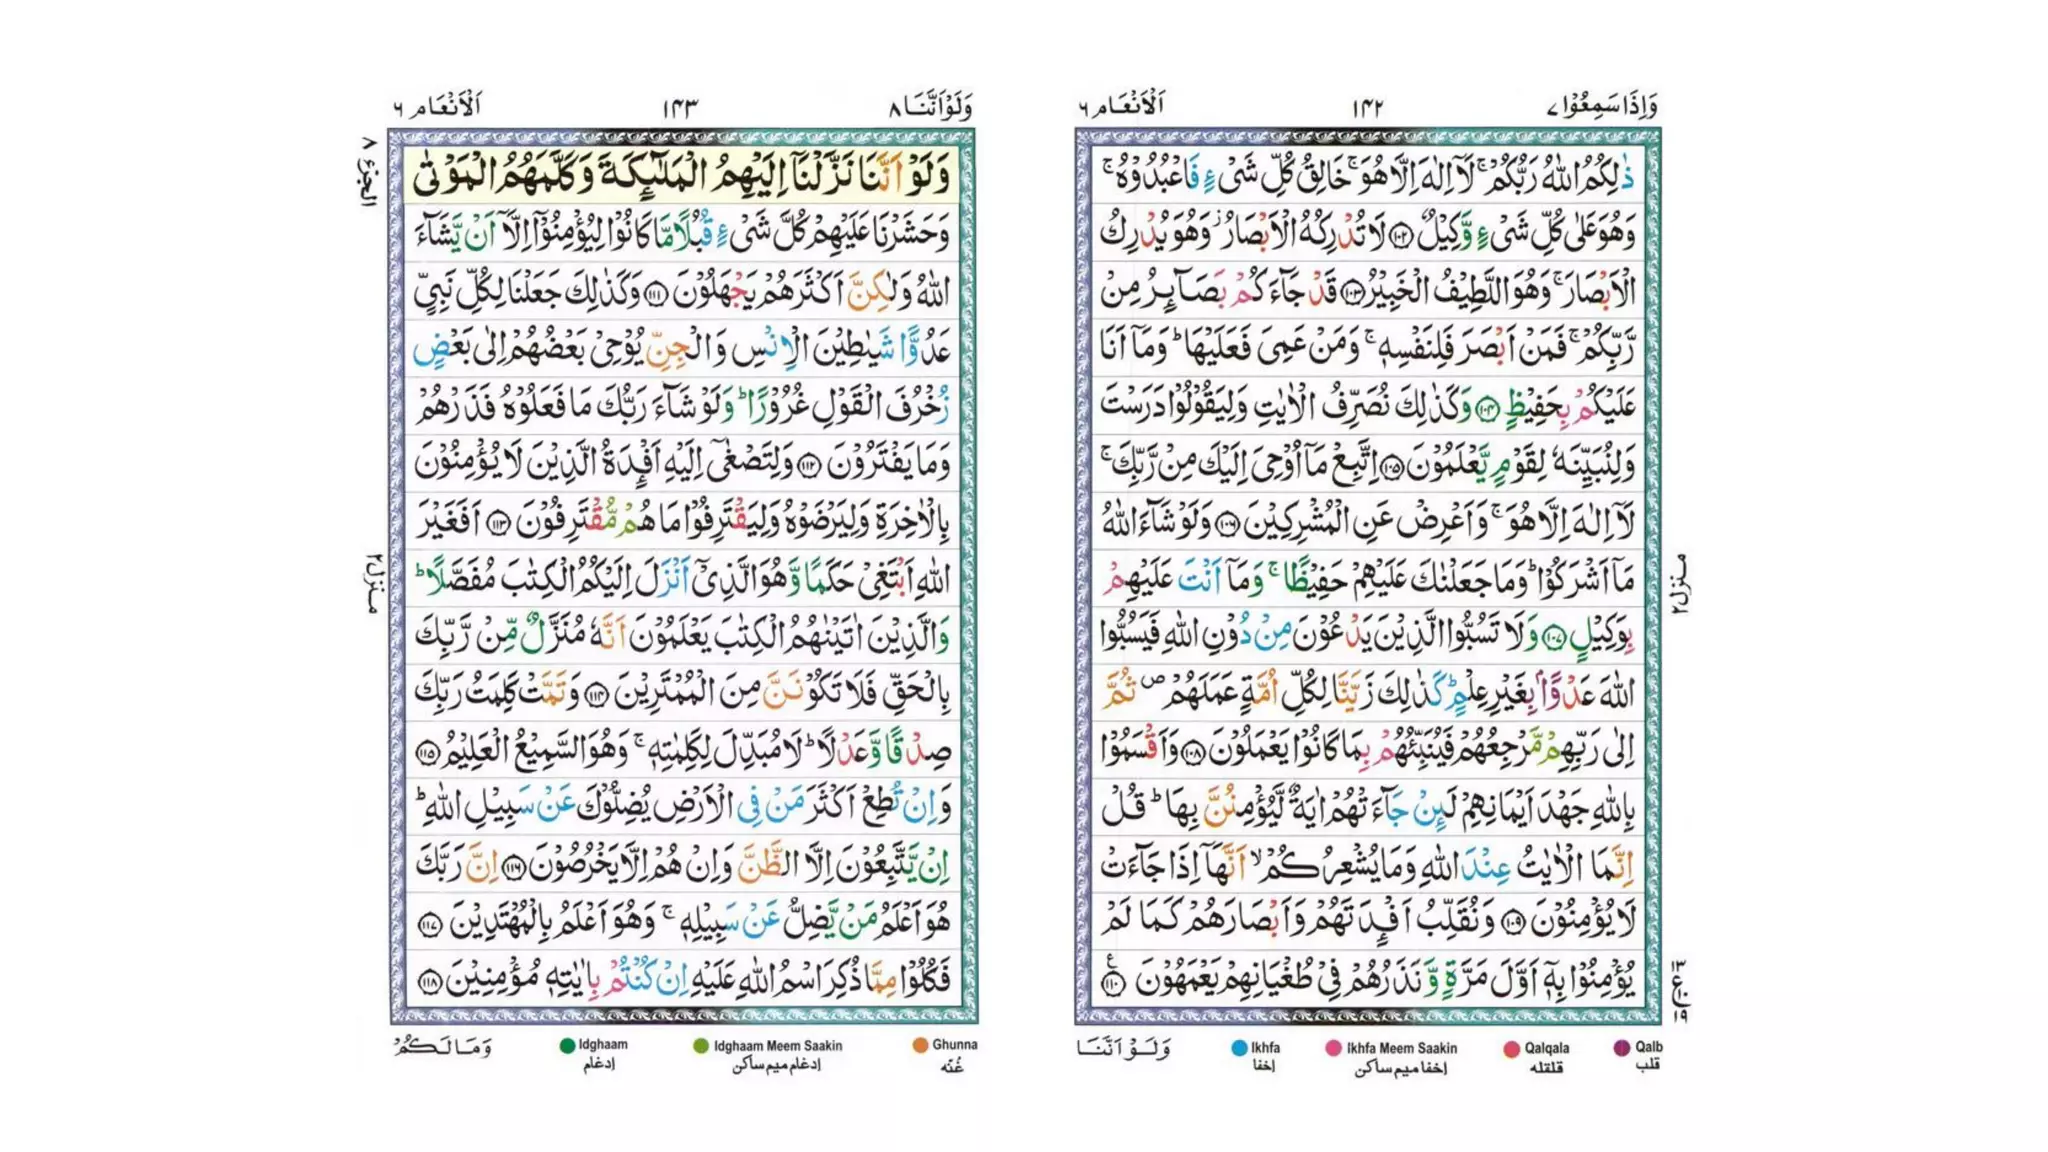 وَاِذَا سَمِعُوۡا ٧
١٤٢
اَلۡاَنۡعَام ٦
ذٰلِكُمُ اللّٰهُ رَبُّكُمۡ ۚ لَاۤ اِلٰهَ اِلَّا هُوَ ۚ خَالِقُ كُلِّ شَىۡءٍ فَاعۡبُدُوۡهُ ۚ
وَهُوَ عَلٰى كُلِّ شَىۡءٍ وَّكِيۡلٌ ﴿١٠٢﴾ لَا تُدۡرِكُهُ الۡاَبۡصَارُ ۫ وَهُوَ يُدۡرِكُ
الۡاَبۡصَارَ ۚ وَهُوَ اللَّطِيۡفُ الۡخَبِيۡرُ ﴿١٠٣﴾ قَدۡ جَآءَكُمۡ بَصَآٮِٕرُ مِنۡ
رَّبِّكُمۡ ۚ فَمَنۡ اَبۡصَرَ فَلِنَفۡسِهٖ ۚ وَمَنۡ عَمِىَ فَعَلَيۡهَا ؕ وَمَاۤ اَنَا
عَلَيۡكُمۡ بِحَفِيۡظٍ ﴿١٠٤﴾ وَكَذٰلِكَ نُصَرِّفُ الۡاٰيٰتِ وَلِيَقُوۡلُوۡا دَرَسۡتَ
وَلِنُبَيِّنَهٗ لِقَوۡمٍ يَّعۡلَمُوۡنَ ﴿١٠٥﴾ اِتَّبِعۡ مَاۤ اُوۡحِىَ اِلَيۡكَ مِنۡ رَّبِّكَ ۚ
لَاۤ اِلٰهَ اِلَّا هُوَ ۚ وَاَعۡرِضۡ عَنِ الۡمُشۡرِكِيۡنَ ﴿١٠٦﴾ وَلَوۡ شَآءَ اللّٰهُ
مَاۤ اَشۡرَكُوۡا ؕ وَمَا جَعَلۡنٰكَ عَلَيۡهِمۡ حَفِيۡظًا ۚ وَمَاۤ اَنۡتَ عَلَيۡهِمۡ
بِوَكِيۡلٍ ﴿١٠٧﴾ وَلَا تَسُبُّوا الَّذِيۡنَ يَدۡعُوۡنَ مِنۡ دُوۡنِ اللّٰهِ فَيَسُبُّوا
اللّٰهَ عَدۡوًۢا بِغَيۡرِ عِلۡمٍ ؕ كَذٰلِكَ زَيَّنَّا لِكُلِّ اُمَّةٍ عَمَلَهُمۡ ۖ ثُمَّ
اِلٰى رَبِّهِمۡ مَّرۡجِعُهُمۡ فَيُنَبِّئُهُمۡ بِمَا كَانُوۡا يَعۡمَلُوۡنَ ﴿١٠٨﴾ وَاَقۡسَمُوۡا
بِاللّٰهِ جَهۡدَ اَيۡمَانِهِمۡ لَٮِٕنۡ جَآءَتۡهُمۡ اٰيَةٌ لَّيُؤۡمِنُنَّ بِهَا ؕ قُلۡ
اِنَّمَا الۡاٰيٰتُ عِنۡدَ اللّٰهِ وَمَا يُشۡعِرُكُمۡ ۙ اَنَّهَاۤ اِذَا جَآءَتۡ
لَا يُؤۡمِنُوۡنَ ﴿١٠٩﴾ وَنُقَلِّبُ اَفۡـِٕدَتَهُمۡ وَاَبۡصَارَهُمۡ كَمَا لَمۡ
يُؤۡمِنُوۡا بِهٖۤ اَوَّلَ مَرَّةٍ وَّنَذَرُهُمۡ فِىۡ طُغۡيَانِهِمۡ يَعۡمَهُوۡنَ ﴿١١٠﴾ ع
منزل ٢
١٣
ع ١٠
١٩
Qalb Qalqala Ikhfa Meem Saakin Ikhfa
قلب قلقله اخفا ميم ساكن اخفا
وَلَوۡ اَنَّنَا
وَلَوۡ اَنَّنَا ٨
١٤٣
اَلۡاَنۡعَام ٦
الجزء ٨
وَلَوۡ اَنَّنَا نَزَّلۡنَاۤ اِلَيۡهِمُ الۡمَلٰٓٮِٕكَةَ وَكَلَّمَهُمُ الۡمَوۡتٰى
وَحَشَرۡنَا عَلَيۡهِمۡ كُلَّ شَىۡءٍ قُبُلًا مَّا كَانُوۡا لِيُؤۡمِنُوۡۤا اِلَّاۤ اَنۡ يَّشَآءَ
اللّٰهُ وَلٰـكِنَّ اَكۡثَرَهُمۡ يَجۡهَلُوۡنَ ﴿١١١﴾ وَكَذٰلِكَ جَعَلۡنَا لِكُلِّ نَبِىٍّ
عَدُوًّا شَيٰطِيۡنَ الۡاِنۡسِ وَالۡجِنِّ يُوۡحِىۡ بَعۡضُهُمۡ اِلٰى بَعۡضٍ
زُخۡرُفَ الۡقَوۡلِ غُرُوۡرًا ؕ وَلَوۡ شَآءَ رَبُّكَ مَا فَعَلُوۡهُ فَذَرۡهُمۡ
وَمَا يَفۡتَرُوۡنَ ﴿١١٢﴾ وَلِتَصۡغٰٓى اِلَيۡهِ اَفۡـِٕدَةُ الَّذِيۡنَ لَا يُؤۡمِنُوۡنَ
بِالۡاٰخِرَةِ وَلِيَرۡضَوۡهُ وَلِيَقۡتَرِفُوۡا مَا هُمۡ مُّقۡتَرِفُوۡنَ ﴿١١٣﴾ اَفَغَيۡرَ
اللّٰهِ اَبۡتَغِىۡ حَكَمًا وَّهُوَ الَّذِىۡۤ اَنۡزَلَ اِلَيۡكُمُ الۡكِتٰبَ مُفَصَّلًا ؕ
وَالَّذِيۡنَ اٰتَيۡنٰهُمُ الۡكِتٰبَ يَعۡلَمُوۡنَ اَنَّهٗ مُنَزَّلٌ مِّنۡ رَّبِّكَ
بِالۡحَقِّ فَلَا تَكُوۡنَنَّ مِنَ الۡمُمۡتَرِيۡنَ ﴿١١٤﴾ وَتَمَّتۡ كَلِمَتُ رَبِّكَ
صِدۡقًا وَّعَدۡلًا ؕ لَا مُبَدِّلَ لِكَلِمٰتِهٖ ۚ وَهُوَ السَّمِيۡعُ الۡعَلِيۡمُ ﴿١١٥﴾
وَاِنۡ تُطِعۡ اَكۡثَرَ مَنۡ فِى الۡاَرۡضِ يُضِلُّوۡكَ عَنۡ سَبِيۡلِ اللّٰهِ ؕ
اِنۡ يَّتَّبِعُوۡنَ اِلَّا الظَّنَّ وَاِنۡ هُمۡ اِلَّا يَخۡرُصُوۡنَ ﴿١١٦﴾ اِنَّ رَبَّكَ
هُوَ اَعۡلَمُ مَنۡ يَّضِلُّ عَنۡ سَبِيۡلِهٖ ۚ وَهُوَ اَعۡلَمُ بِالۡمُهۡتَدِيۡنَ ﴿١١٧﴾
فَكُلُوۡا مِمَّا ذُكِرَ اسۡمُ اللّٰهِ عَلَيۡهِ اِنۡ كُنۡتُمۡ بِاٰيٰتِهٖ مُؤۡمِنِيۡنَ ﴿١١٨﴾
منزل ٢
Ghunna Idghaam Meem Saakin Idghaam
غُنّه ادغام ميم ساكن ادغام
وَمَا لَـكُمۡ